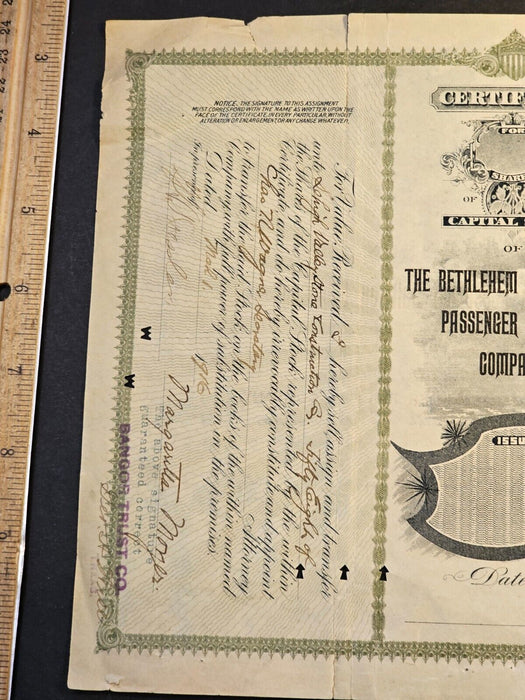 NOTICE, THE SIGNATURE TO THIS ASSIGNMENT
MUST CORRESPOND WITH THE NAME AS WRITTEN UPON THE
FACE OF THE CERTIFICATE, IN EVERY PARTICULAR, WITHOUT
ALTERATION OR ENLARGEMENT OR ANY CHANGE WHATEVER.
For Value Received, I hereby sell, assign and transfer
unto Lehigh Valley Stone Construction Co. Fifty Eight of
the Shares of the Capital Stock represented by the within
Certificate, and do hereby irrevocably constitute and appoint
Attorney
to transfer the said Stock on the books of the within named
Company with full power of substitution in the premises.
Dated 19
In presence of
The above signature
Guaranteed correct
BANGOR TRUST CO.
CERTIF
FOR
SHARE
OF
CAPITAL
OF
THE BETHLEHEM
PASSENGER
COMPA
ISSU
Date